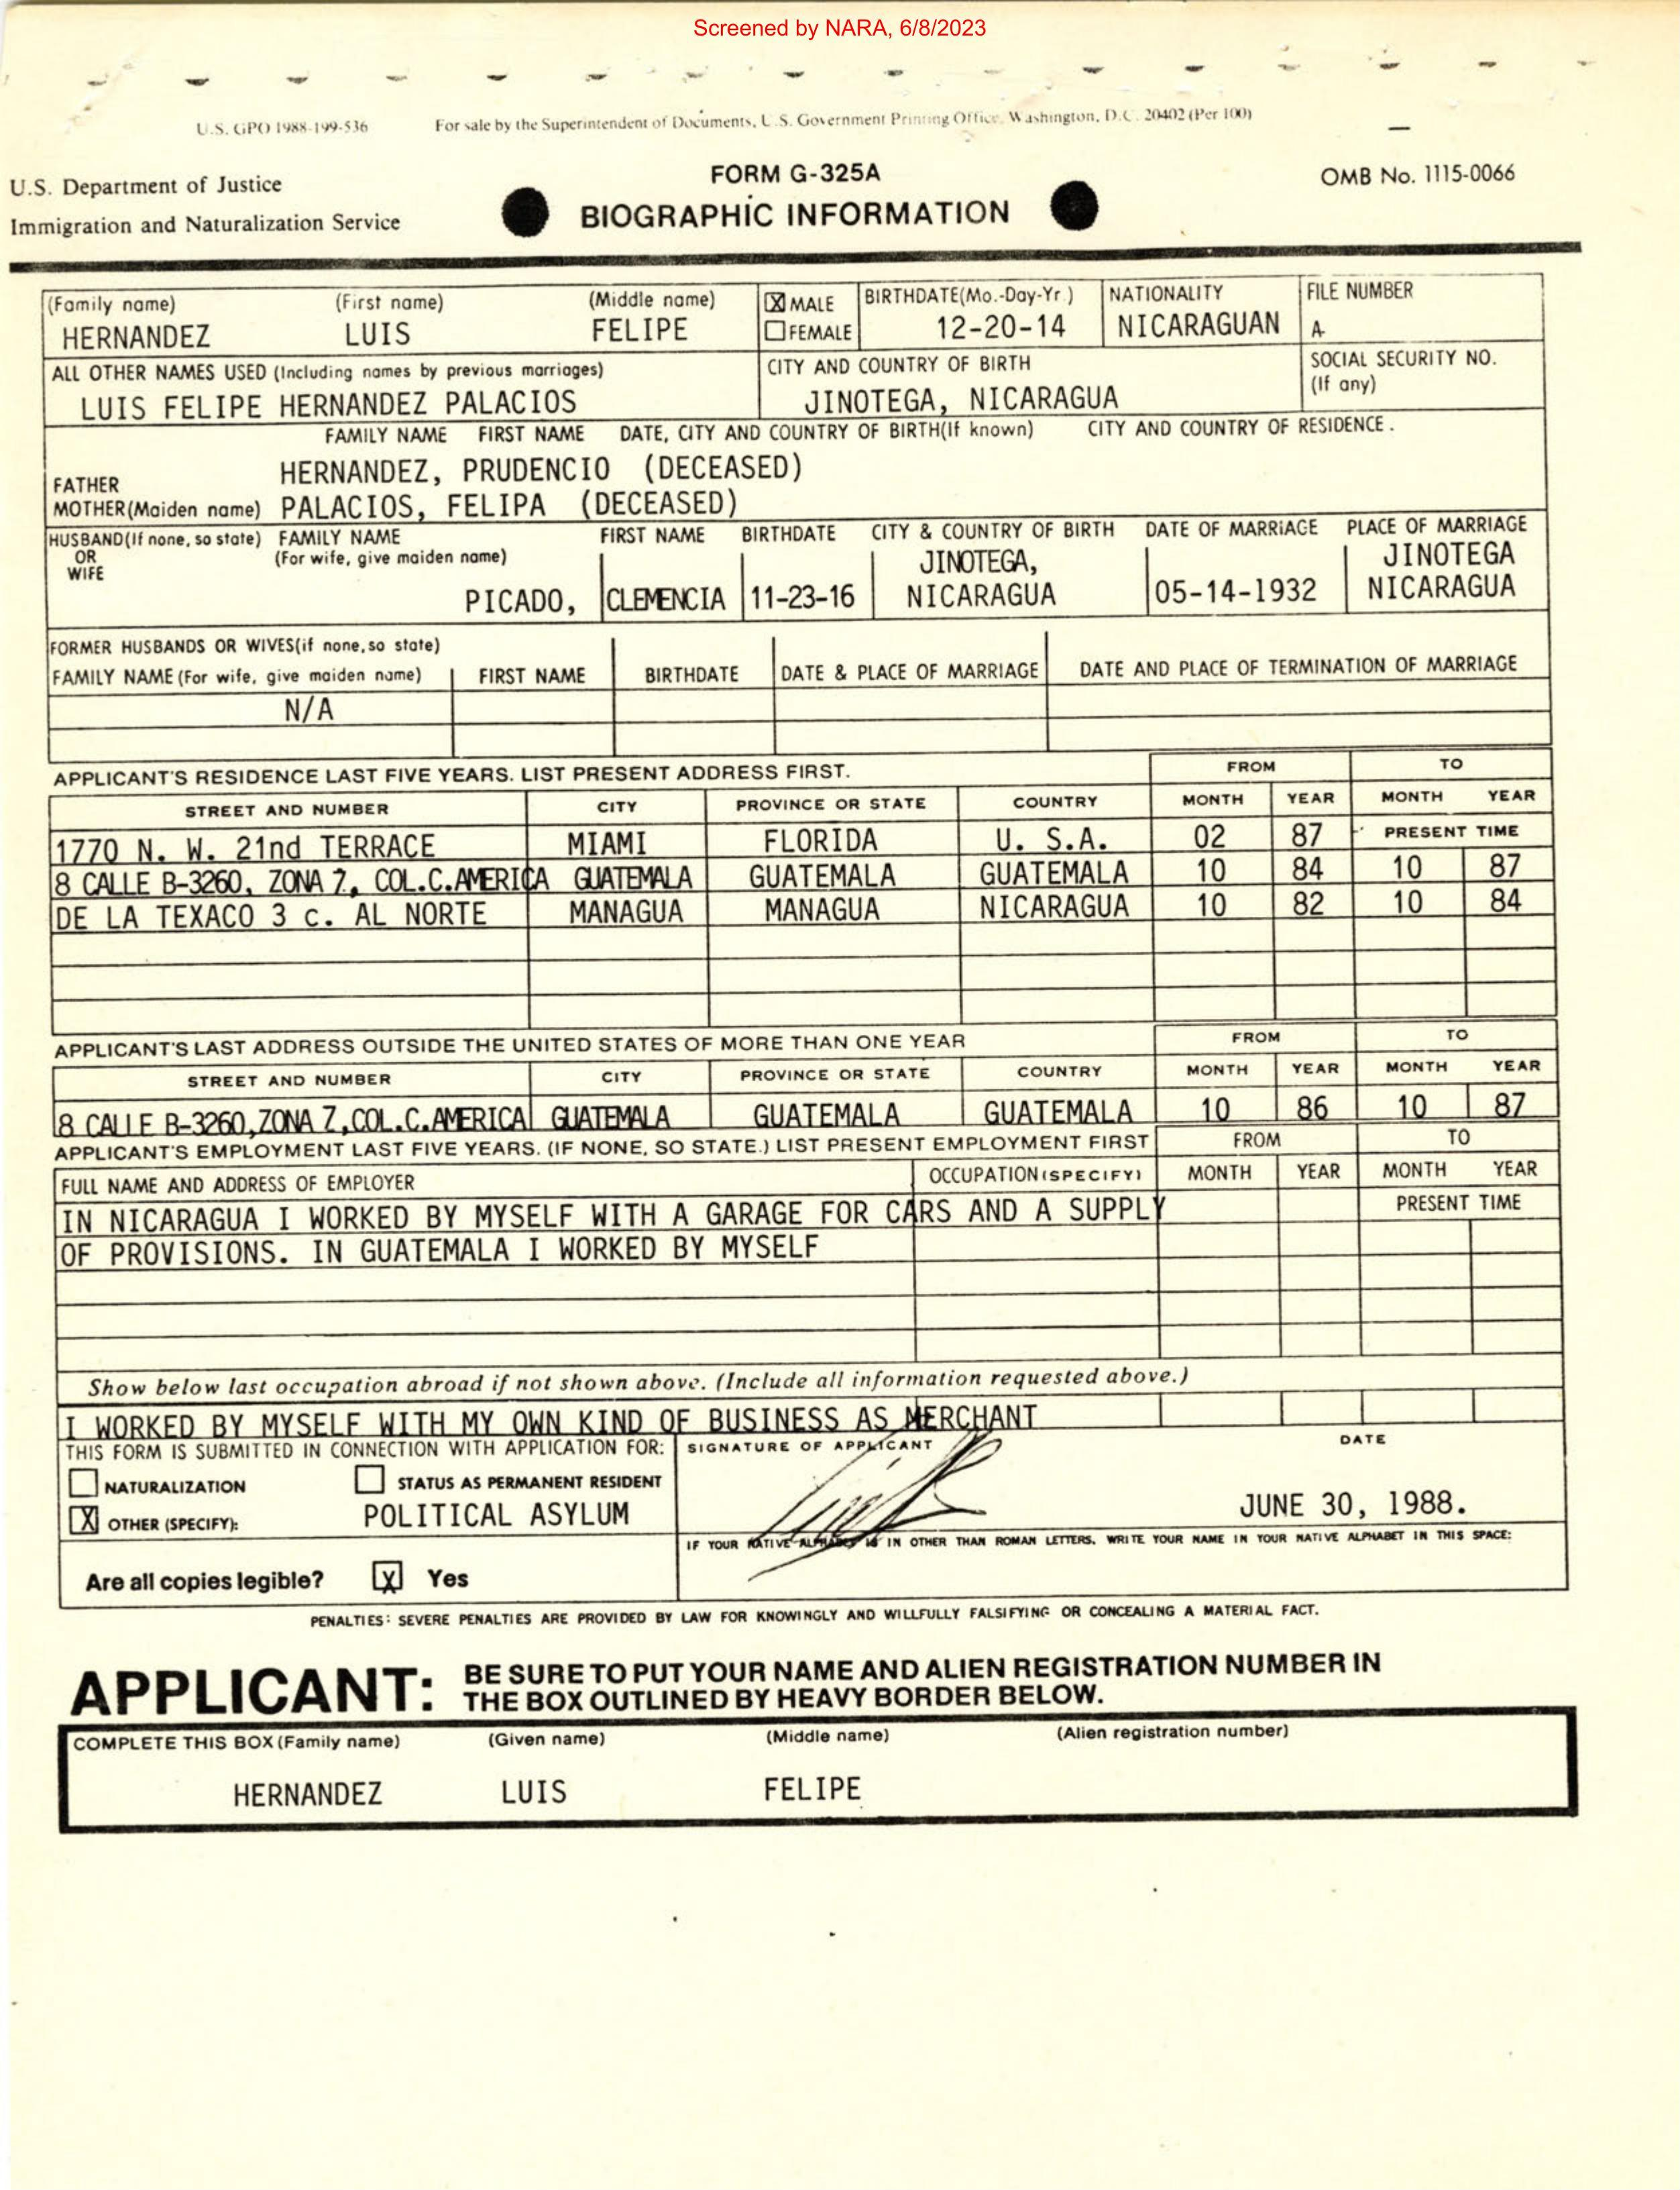 Screened by NARA, 6/8/2023
U.S. GPO 1988-199-536 For sale by the Superintendent of Documents, U.S. Government Printing Office, Washington, D.C. 20402 (Per 100)
U.S. Department of Justice FORM G-325A OMB No. 1115-0066
Immigration and Naturalization Service BIOGRAPHIC INFORMATION
(Family name) (First name) (Middle name) X MALE BIRTHDATE(Mo.-Day-Yr.) NATIONALITY FILE NUMBER
HERNANDEZ LUIS FELIPE FEMALE 12-20-14 NICARAGUAN A-
ALL OTHER NAMES USED (Including names by previous marriages) CITY AND COUNTRY OF BIRTH SOCIAL SECURITY NO.
(If any)
LUIS FELIPE HERNANDEZ PALACIOS JINOTEGA, NICARAGUA
FAMILY NAME FIRST NAME DATE, CITY AND COUNTRY OF BIRTH(If known) CITY AND COUNTRY OF RESIDENCE.
FATHER HERNANDEZ, PRUDENCIO (DECEASED)
MOTHER(Maiden name) PALACIOS, FELIPA (DECEASED)
HUSBAND(If none, so state) FAMILY NAME FIRST NAME BIRTHDATE CITY & COUNTRY OF BIRTH DATE OF MARRIAGE PLACE OF MARRIAGE
OR (For wife, give maiden name) JINOTEGA, JINOTEGA
WIFE
PICADO, CLEMENCIA 11-23-16 NICARAGUA 05-14-1932 NICARAGUA
FORMER HUSBANDS OR WIVES(if none, so state)
FAMILY NAME (For wife, give maiden name) FIRST NAME BIRTHDATE DATE & PLACE OF MARRIAGE DATE AND PLACE OF TERMINATION OF MARRIAGE
N/A
APPLICANT'S RESIDENCE LAST FIVE YEARS. LIST PRESENT ADDRESS FIRST. FROM TO
STREET AND NUMBER CITY PROVINCE OR STATE COUNTRY MONTH YEAR MONTH YEAR
1770 N. W. 21nd TERRACE MIAMI FLORIDA U. S.A. 02 87 PRESENT TIME
8 CALLE B-3260, ZONA 7, COL.C.AMERICA GUATEMALA GUATEMALA GUATEMALA 10 84 10 87
DE LA TEXACO 3 c. AL NORTE MANAGUA MANAGUA NICARAGUA 10 82 10 84
APPLICANT'S LAST ADDRESS OUTSIDE THE UNITED STATES OF MORE THAN ONE YEAR FROM TO
STREET AND NUMBER CITY PROVINCE OR STATE COUNTRY MONTH YEAR MONTH YEAR
8 CALLE B-3260,ZONA 7,COL.C.AMERICA GUATEMALA GUATEMALA GUATEMALA 10 86 10 87
APPLICANT'S EMPLOYMENT LAST FIVE YEARS. (IF NONE, SO STATE.) LIST PRESENT EMPLOYMENT FIRST FROM TO
FULL NAME AND ADDRESS OF EMPLOYER OCCUPATION (SPECIFY) MONTH YEAR MONTH YEAR
IN NICARAGUA I WORKED BY MYSELF WITH A GARAGE FOR CARS AND A SUPPLY PRESENT TIME
OF PROVISIONS. IN GUATEMALA I WORKED BY MYSELF
Show below last occupation abroad if not shown above. (Include all information requested above.)
I WORKED BY MYSELF WITH MY OWN KIND OF BUSINESS AS MERCHANT
THIS FORM IS SUBMITTED IN CONNECTION WITH APPLICATION FOR: SIGNATURE OF APPLICANT DATE
NATURALIZATION STATUS AS PERMANENT RESIDENT
X OTHER (SPECIFY): POLITICAL ASYLUM JUNE 30, 1988.
IF YOUR NATIVE ALPHABET IS IN OTHER THAN ROMAN LETTERS, WRITE YOUR NAME IN YOUR NATIVE ALPHABET IN THIS SPACE:
Are all copies legible? X Yes
PENALTIES: SEVERE PENALTIES ARE PROVIDED BY LAW FOR KNOWINGLY AND WILLFULLY FALSIFYING OR CONCEALING A MATERIAL FACT.
APPLICANT: BE SURE TO PUT YOUR NAME AND ALIEN REGISTRATION NUMBER IN
THE BOX OUTLINED BY HEAVY BORDER BELOW.
COMPLETE THIS BOX (Family name) (Given name) (Middle name) (Alien registration number)
HERNANDEZ LUIS FELIPE